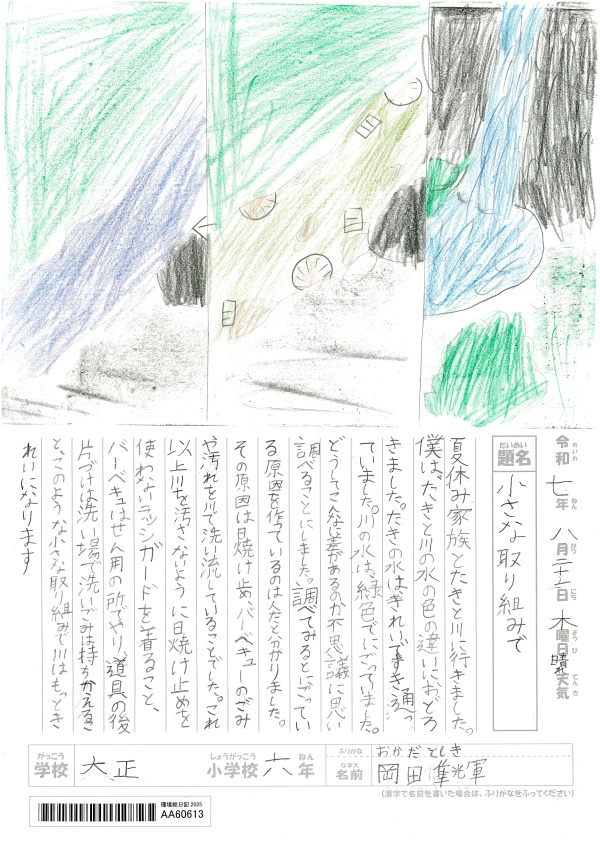 令和七年八月二十一日木曜日晴れ天気
れいわ ねん がつ にち ようび てんき
だいめい
題名
小さな取り組みで
夏休み家族とたきと川に行きました。
僕はたきと川の水の色の違いにおどろ
きました。たきの水はきれいですき通っ
ていました。川の水は緑色でにごっていました。
どうしてこんなに差があるのか不思議に思い
調べることにしました。調べてみるとにごってい
る原因を作っているのは人だと分かりました。
その原因は日焼け止め、バーベキューのごみ
や汚れを川で洗い流していることでした。これ
以上川を汚さないように日焼け止めを
使わないラッシガードを着ること、
バーベキュはせん用の所でやり、道具の後
片づけは洗い場で洗い、ごみは持ちかえるこ
と、このような小さな取り組みで川はもっとき
れいになります
がっこう しょうがっこう ねん
学校 大正 小学校 六年
ふりがな おかだとしき
なまえ
名前 岡田
(漢字で名前を書いた場合は、ふりがなをふってください)
環境絵日記 2025
AA60613